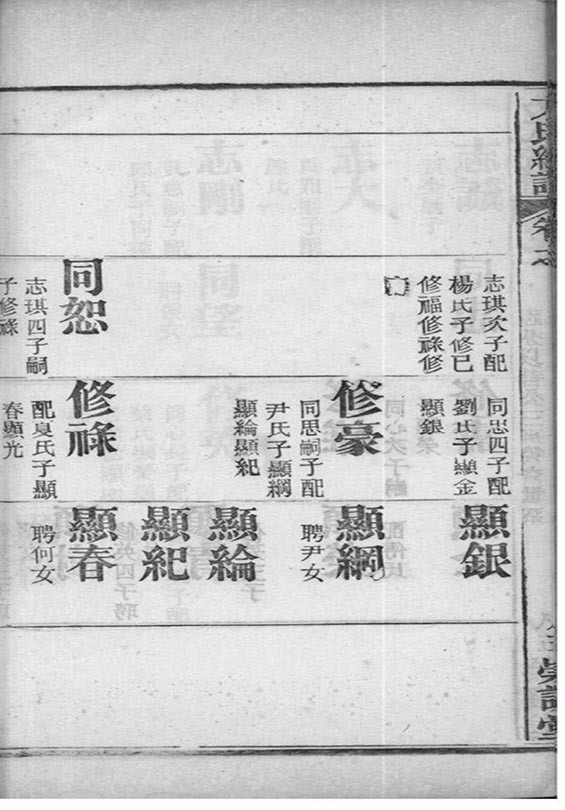 卷之
志琪次子配
楊氏子修已
修福修祿修
同恕
志琪四子嗣
子修祿
同忠四子配
劉氏子顯金
顯銀
修豪
同思嗣子配
尹氏子顯綱
顯綸顯紀
修祿
配夏氏子顯
春顯光
顯銀
顯綱
聘尹女
顯綸
顯紀
顯春
聘何女